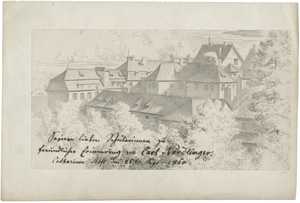 Seinen lieben Schülerinnen zu
freundlicher Erinnerung von Carl Nördlinger.
Catharinen Stift den 25ten Sept. 1860.